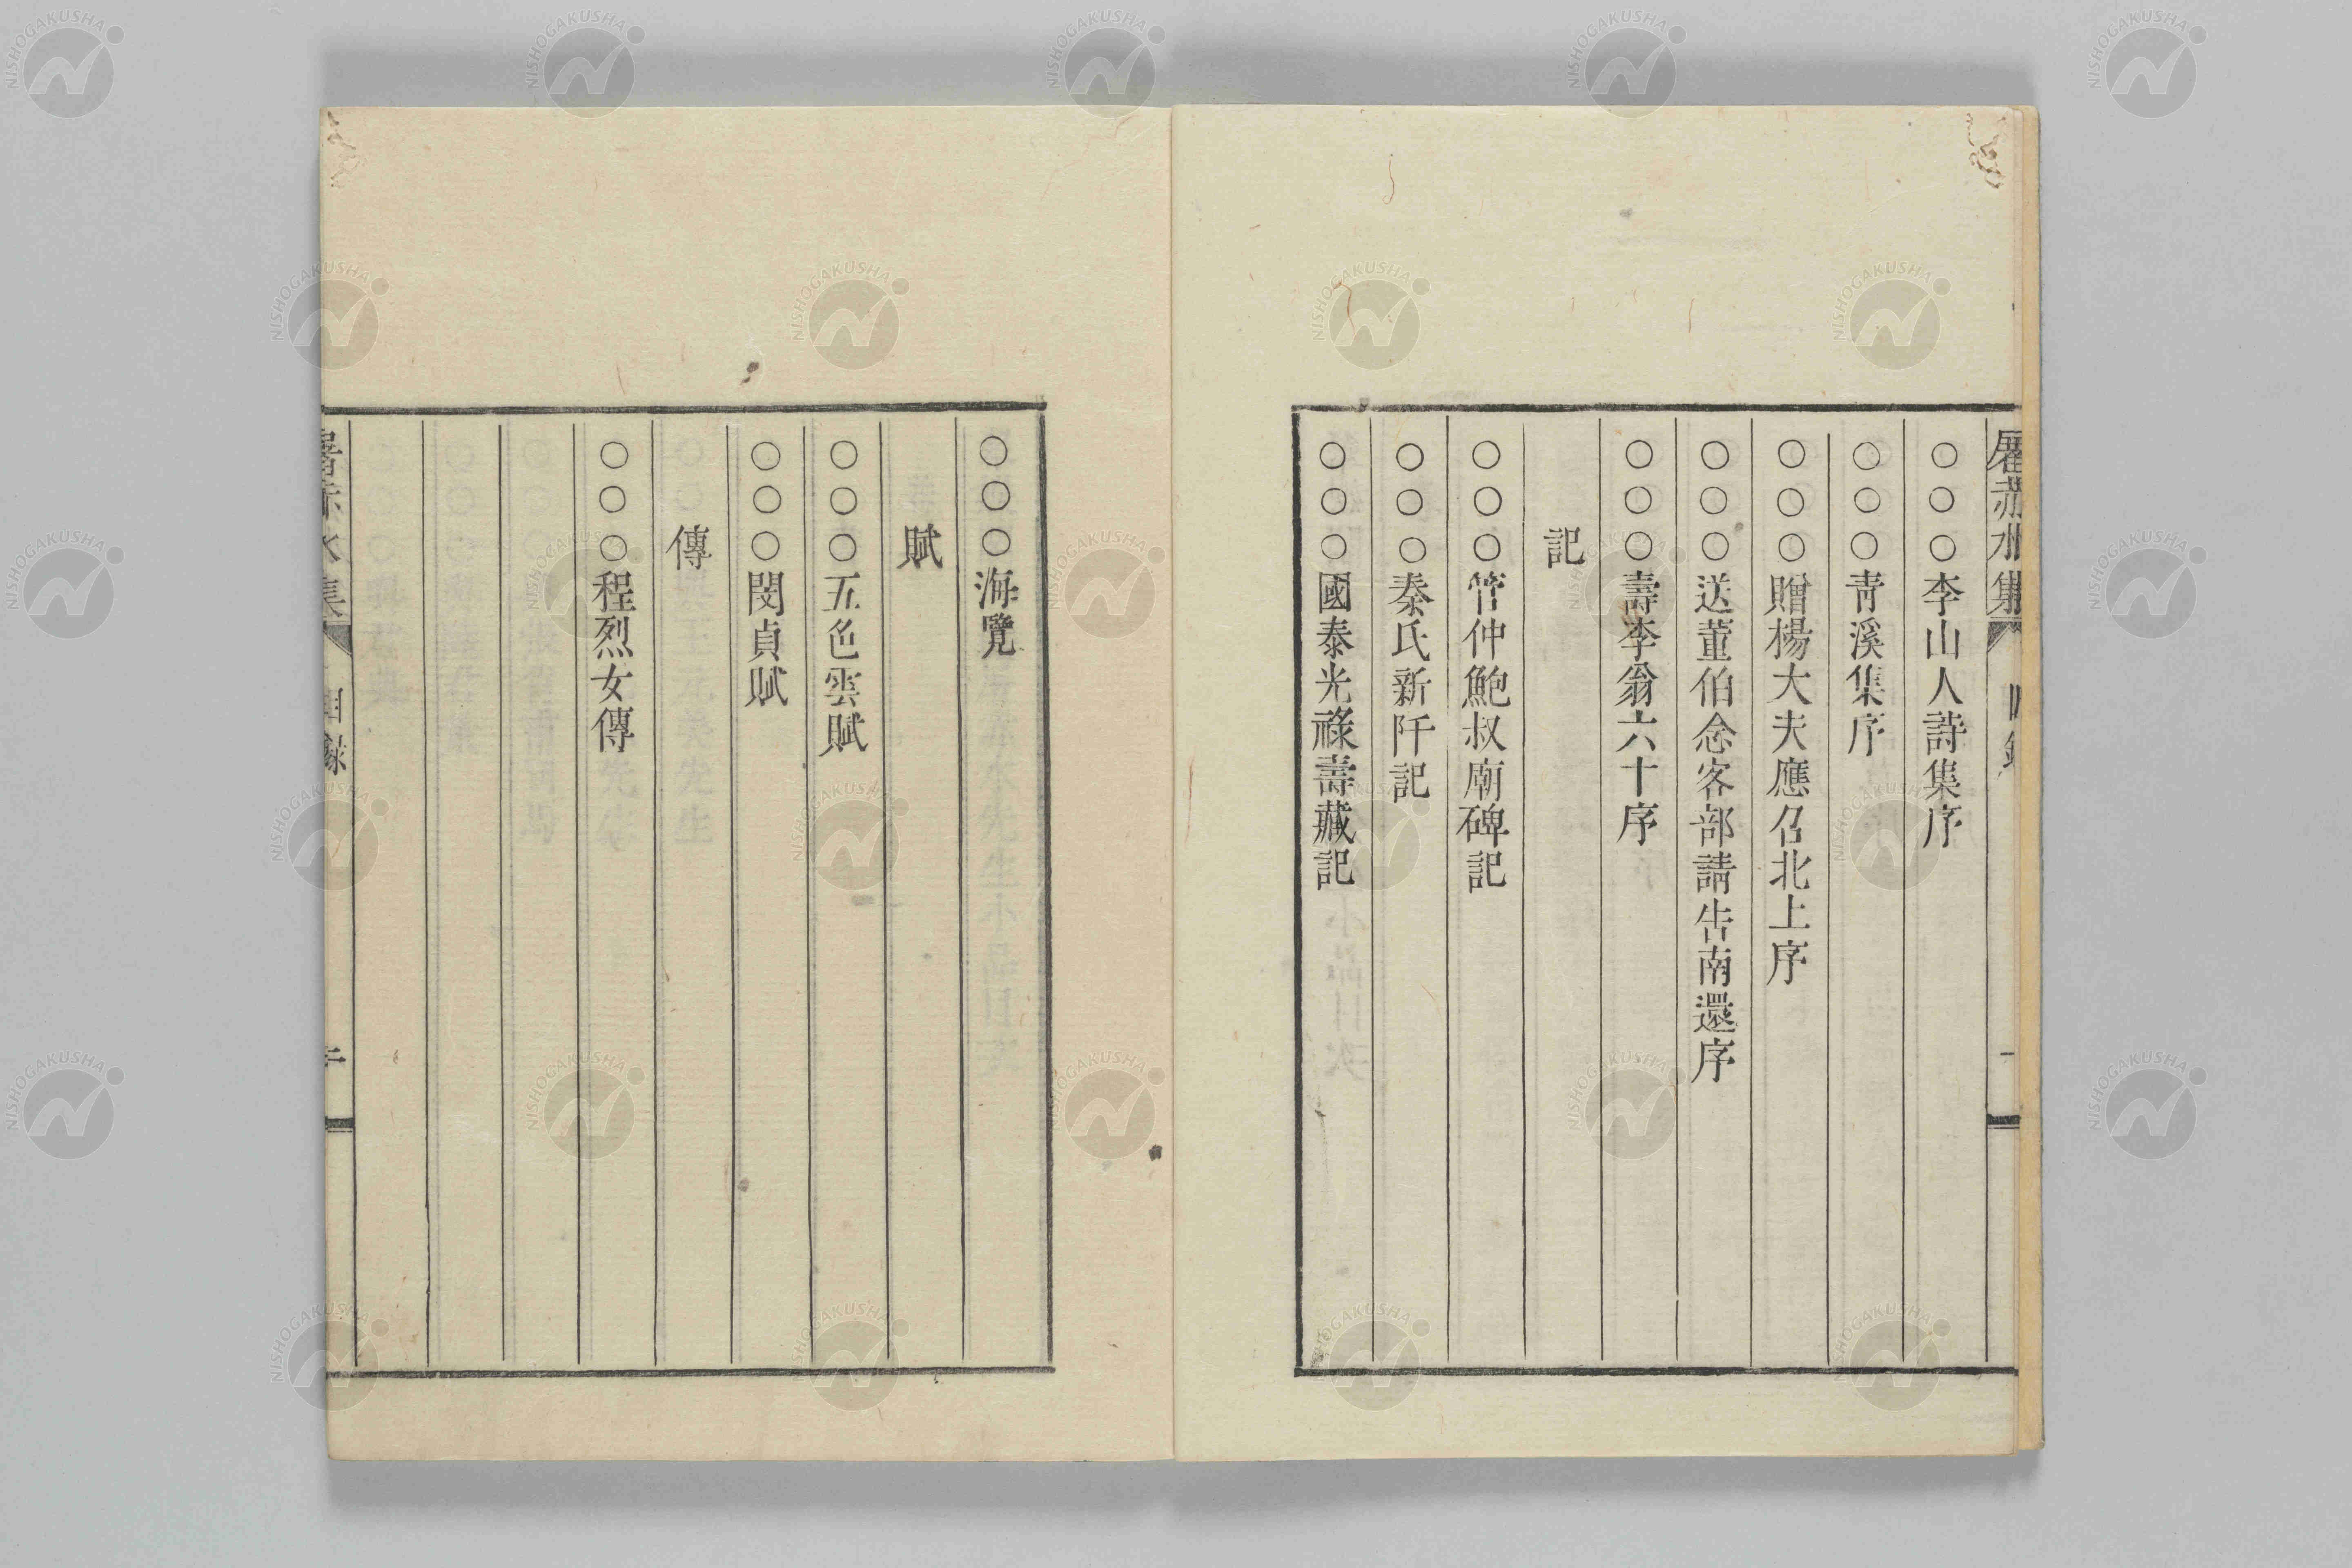 屠赤水集 目錄 一
○○○李山人詩集序
○○○青溪集序
○○○贈楊大夫應召北上序
○○○送董伯念客部請告南還序
○○○壽李翁六十序
記
○○○管仲鮑叔廟碑記
○○○秦氏新阡記
○○○國泰光祿壽藏記
○○○海覽
賦
○○○五色雲賦
○○○閔貞賦
傳
○○○程烈女傳
屠赤水集 目錄 二
NISHOGAKUSHA